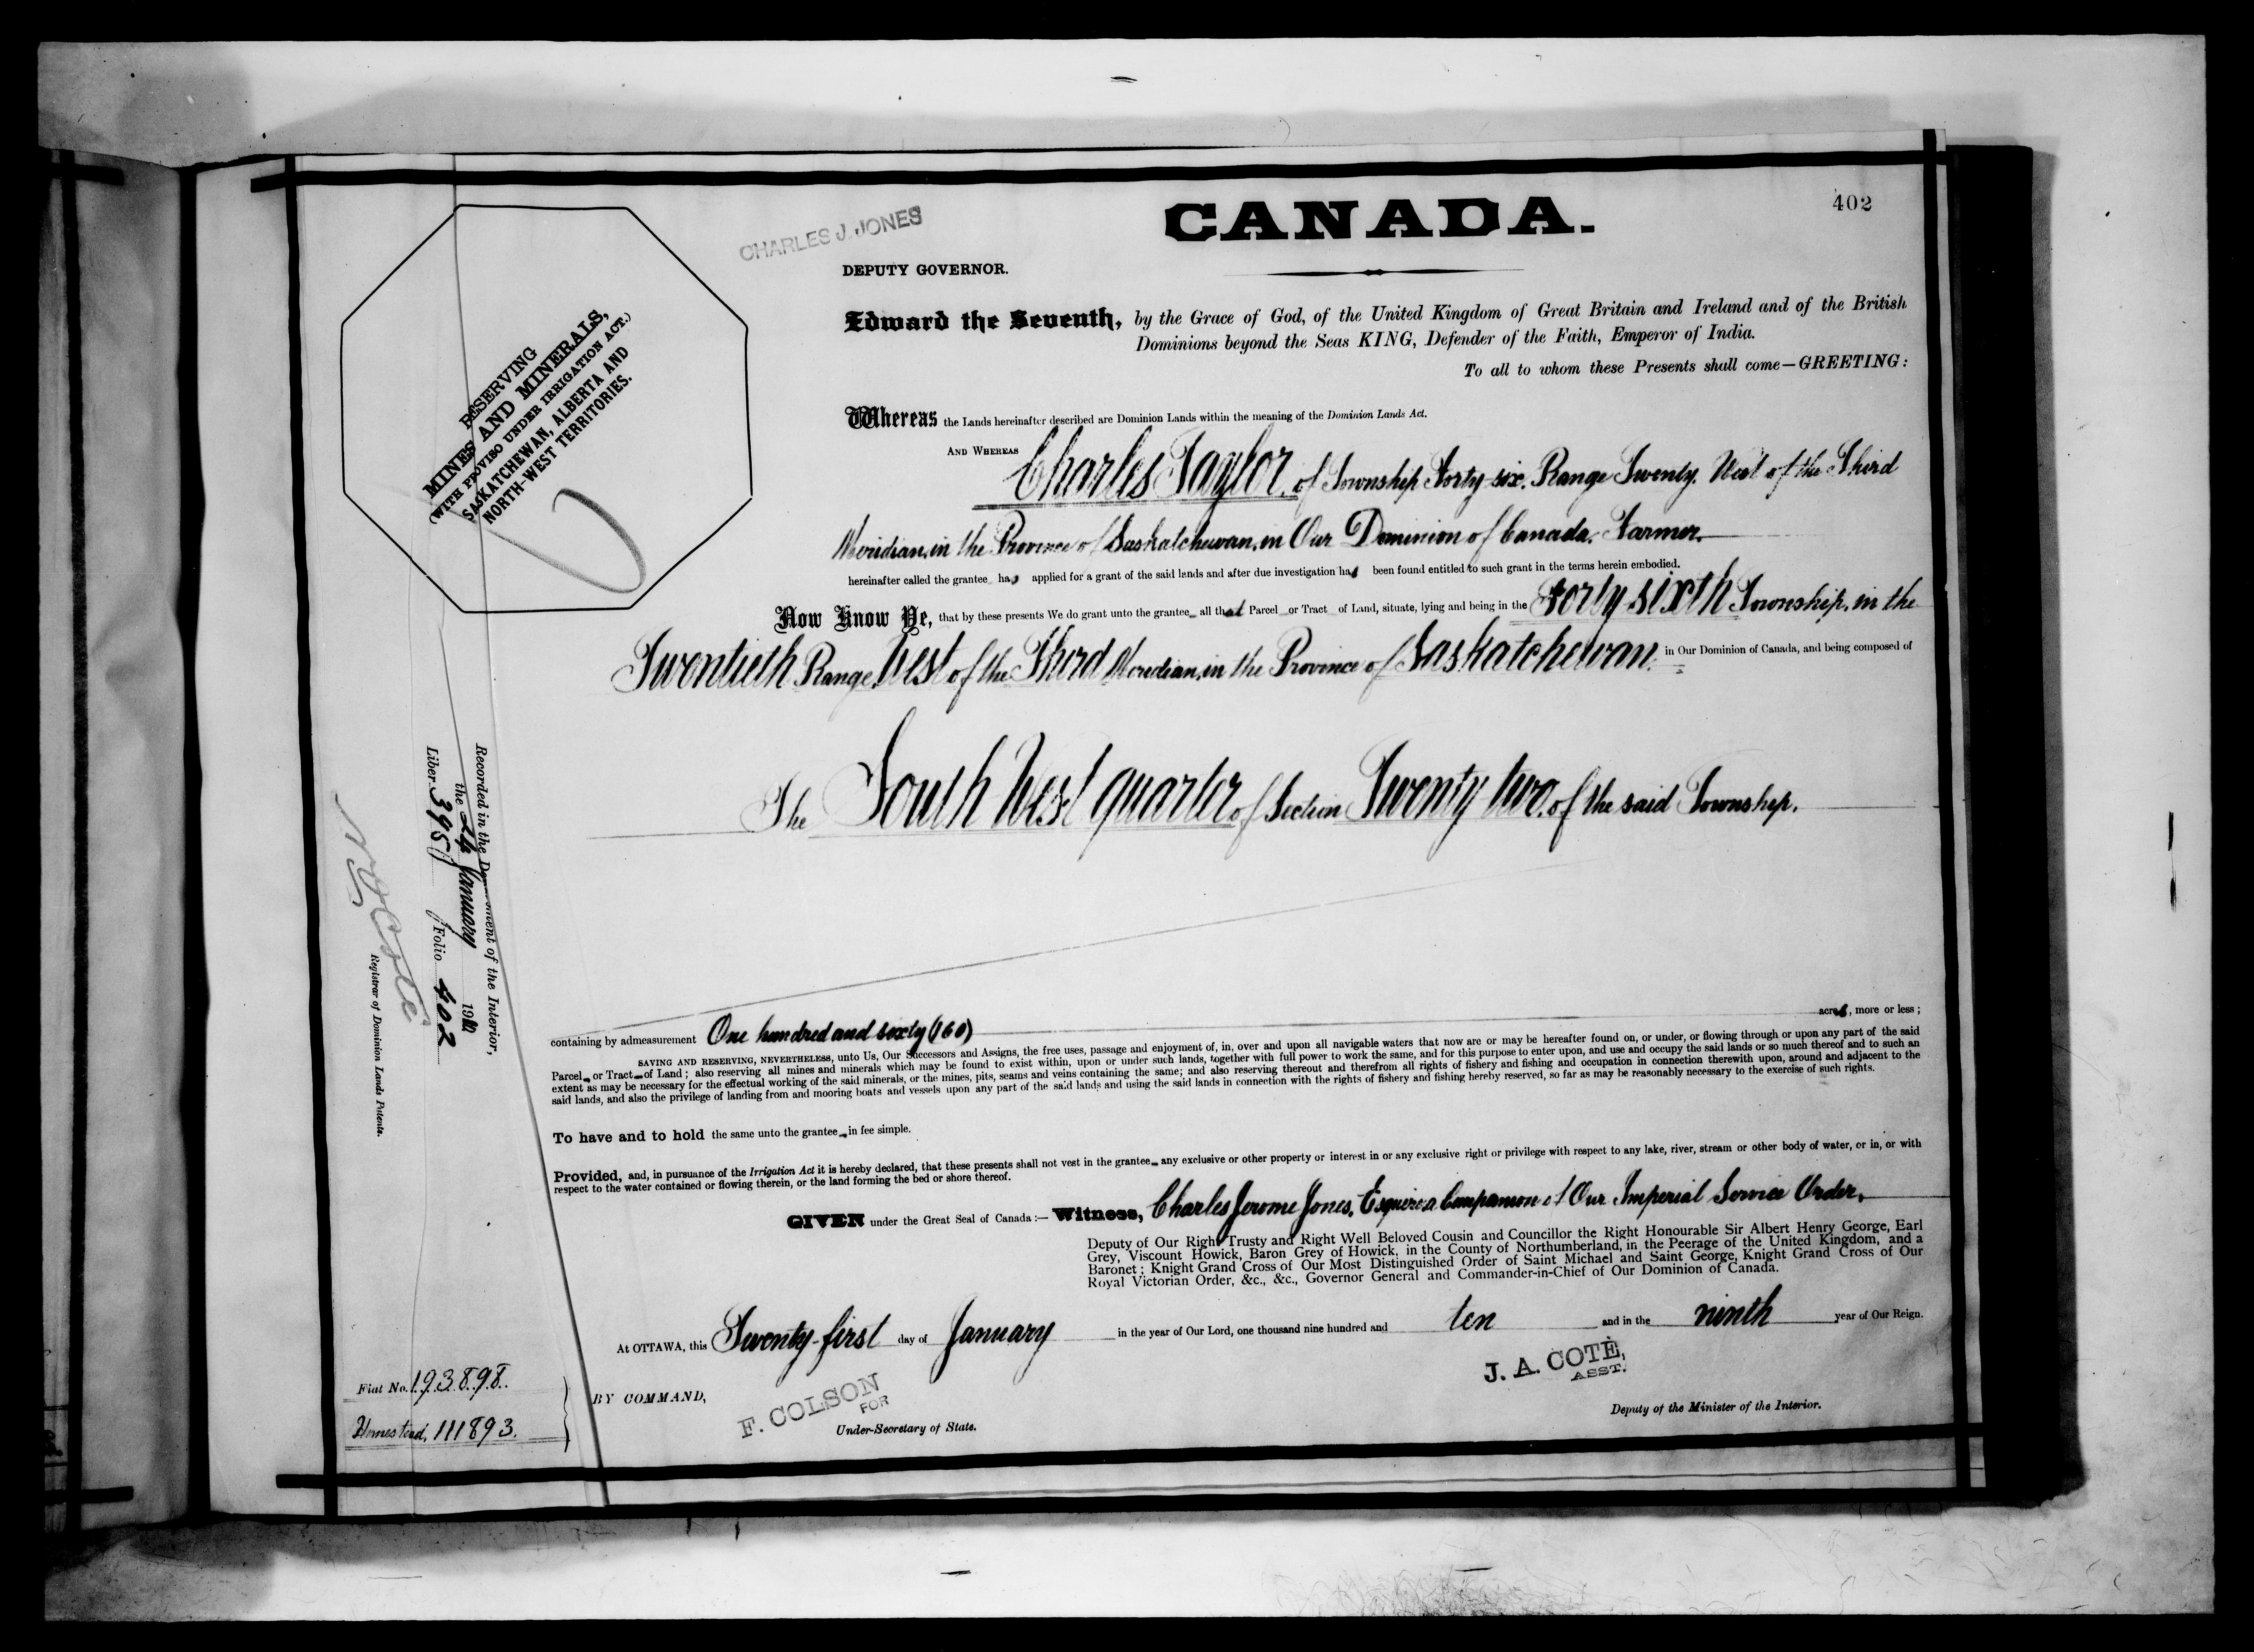 402
CANADA.
CHARLES J. JONES
DEPUTY GOVERNOR.
RESERVING
MINES AND MINERALS,
(WITH PROVISO UNDER IRRIGATION ACT.)
SASKATCHEWAN, ALBERTA AND
NORTH-WEST TERRITORIES.
Edward the Seventh, by the Grace of God, of the United Kingdom of Great Britain and Ireland and of the British
Dominions beyond the Seas KING, Defender of the Faith, Emperor of India.
To all to whom these Presents shall come—GREETING:
Whereas the Lands hereinafter described are Dominion Lands within the meaning of the Dominion Lands Act.
AND WHEREAS Charles Taylor, of Township Forty-six, Range Twenty, West of the Third
Meridian, in the Province of Saskatchewan, in Our Dominion of Canada, Farmer.
hereinafter called the grantee has applied for a grant of the said lands and after due investigation has been found entitled to such grant in the terms herein embodied.
Now Know Ye, that by these presents We do grant unto the grantee all that Parcel or Tract of Land, situate, lying and being in the Forty-sixth Township, in the
Twentieth Range, West of the Third Meridian, in the Province of Saskatchewan, in Our Dominion of Canada, and being composed of
The South West quarter of Section Twenty two, of the said Township.
Recorded in the Department of the Interior,
the 24 January 1910
Liber 395 Folio 402
N O Coté
Registrar of Dominion Lands Patents.
acres, more or less;
containing by admeasurement One hundred and sixty (160)
SAVING AND RESERVING, NEVERTHELESS, unto Us, Our Successors and Assigns, the free uses, passage and enjoyment of, in, over and upon all navigable waters that now are or may be hereafter found on, or under, or flowing through or upon any part of the said
Parcel or Tract of Land; also reserving all mines and minerals which may be found to exist within, upon or under such lands, together with full power to work the same, and for this purpose to enter upon, and use and occupy the said lands or so much thereof and to such an
extent as may be necessary for the effectual working of the said minerals, or the mines, pits, seams and veins containing the same; and also reserving thereout and therefrom all rights of fishery and fishing and occupation in connection therewith upon, around and adjacent to the
said lands, and also the privilege of landing from and mooring boats and vessels upon any part of the said lands and using the said lands in connection with the rights of fishery and fishing hereby reserved, so far as may be reasonably necessary to the exercise of such rights.
To have and to hold the same unto the grantee in fee simple.
Provided, and, in pursuance of the Irrigation Act it is hereby declared, that these presents shall not vest in the grantee any exclusive or other property or interest in or any exclusive right or privilege with respect to any lake, river, stream or other body of water, or in, or with
respect to the water contained or flowing therein, or the land forming the bed or shore thereof.
GIVEN under the Great Seal of Canada:— Witness, Charles Jerome Jones, Esquire, a Companion of Our Imperial Service Order,
Deputy of Our Right Trusty and Right Well Beloved Cousin and Councillor the Right Honourable Sir Albert Henry George, Earl
Grey, Viscount Howick, Baron Grey of Howick, in the County of Northumberland, in the Peerage of the United Kingdom, and a
Baronet; Knight Grand Cross of Our Most Distinguished Order of Saint Michael and Saint George, Knight Grand Cross of Our
Royal Victorian Order, &c., &c., Governor General and Commander-in-Chief of Our Dominion of Canada.
At OTTAWA, this Twenty-first day of January in the year of Our Lord, one thousand nine hundred and ten and in the ninth year of Our Reign.
Fiat No. 193898.
Homestead, 111893.
BY COMMAND,
F. COLSON
FOR
Under-Secretary of State.
J. A. COTÉ,
ASST.
Deputy of the Minister of the Interior.